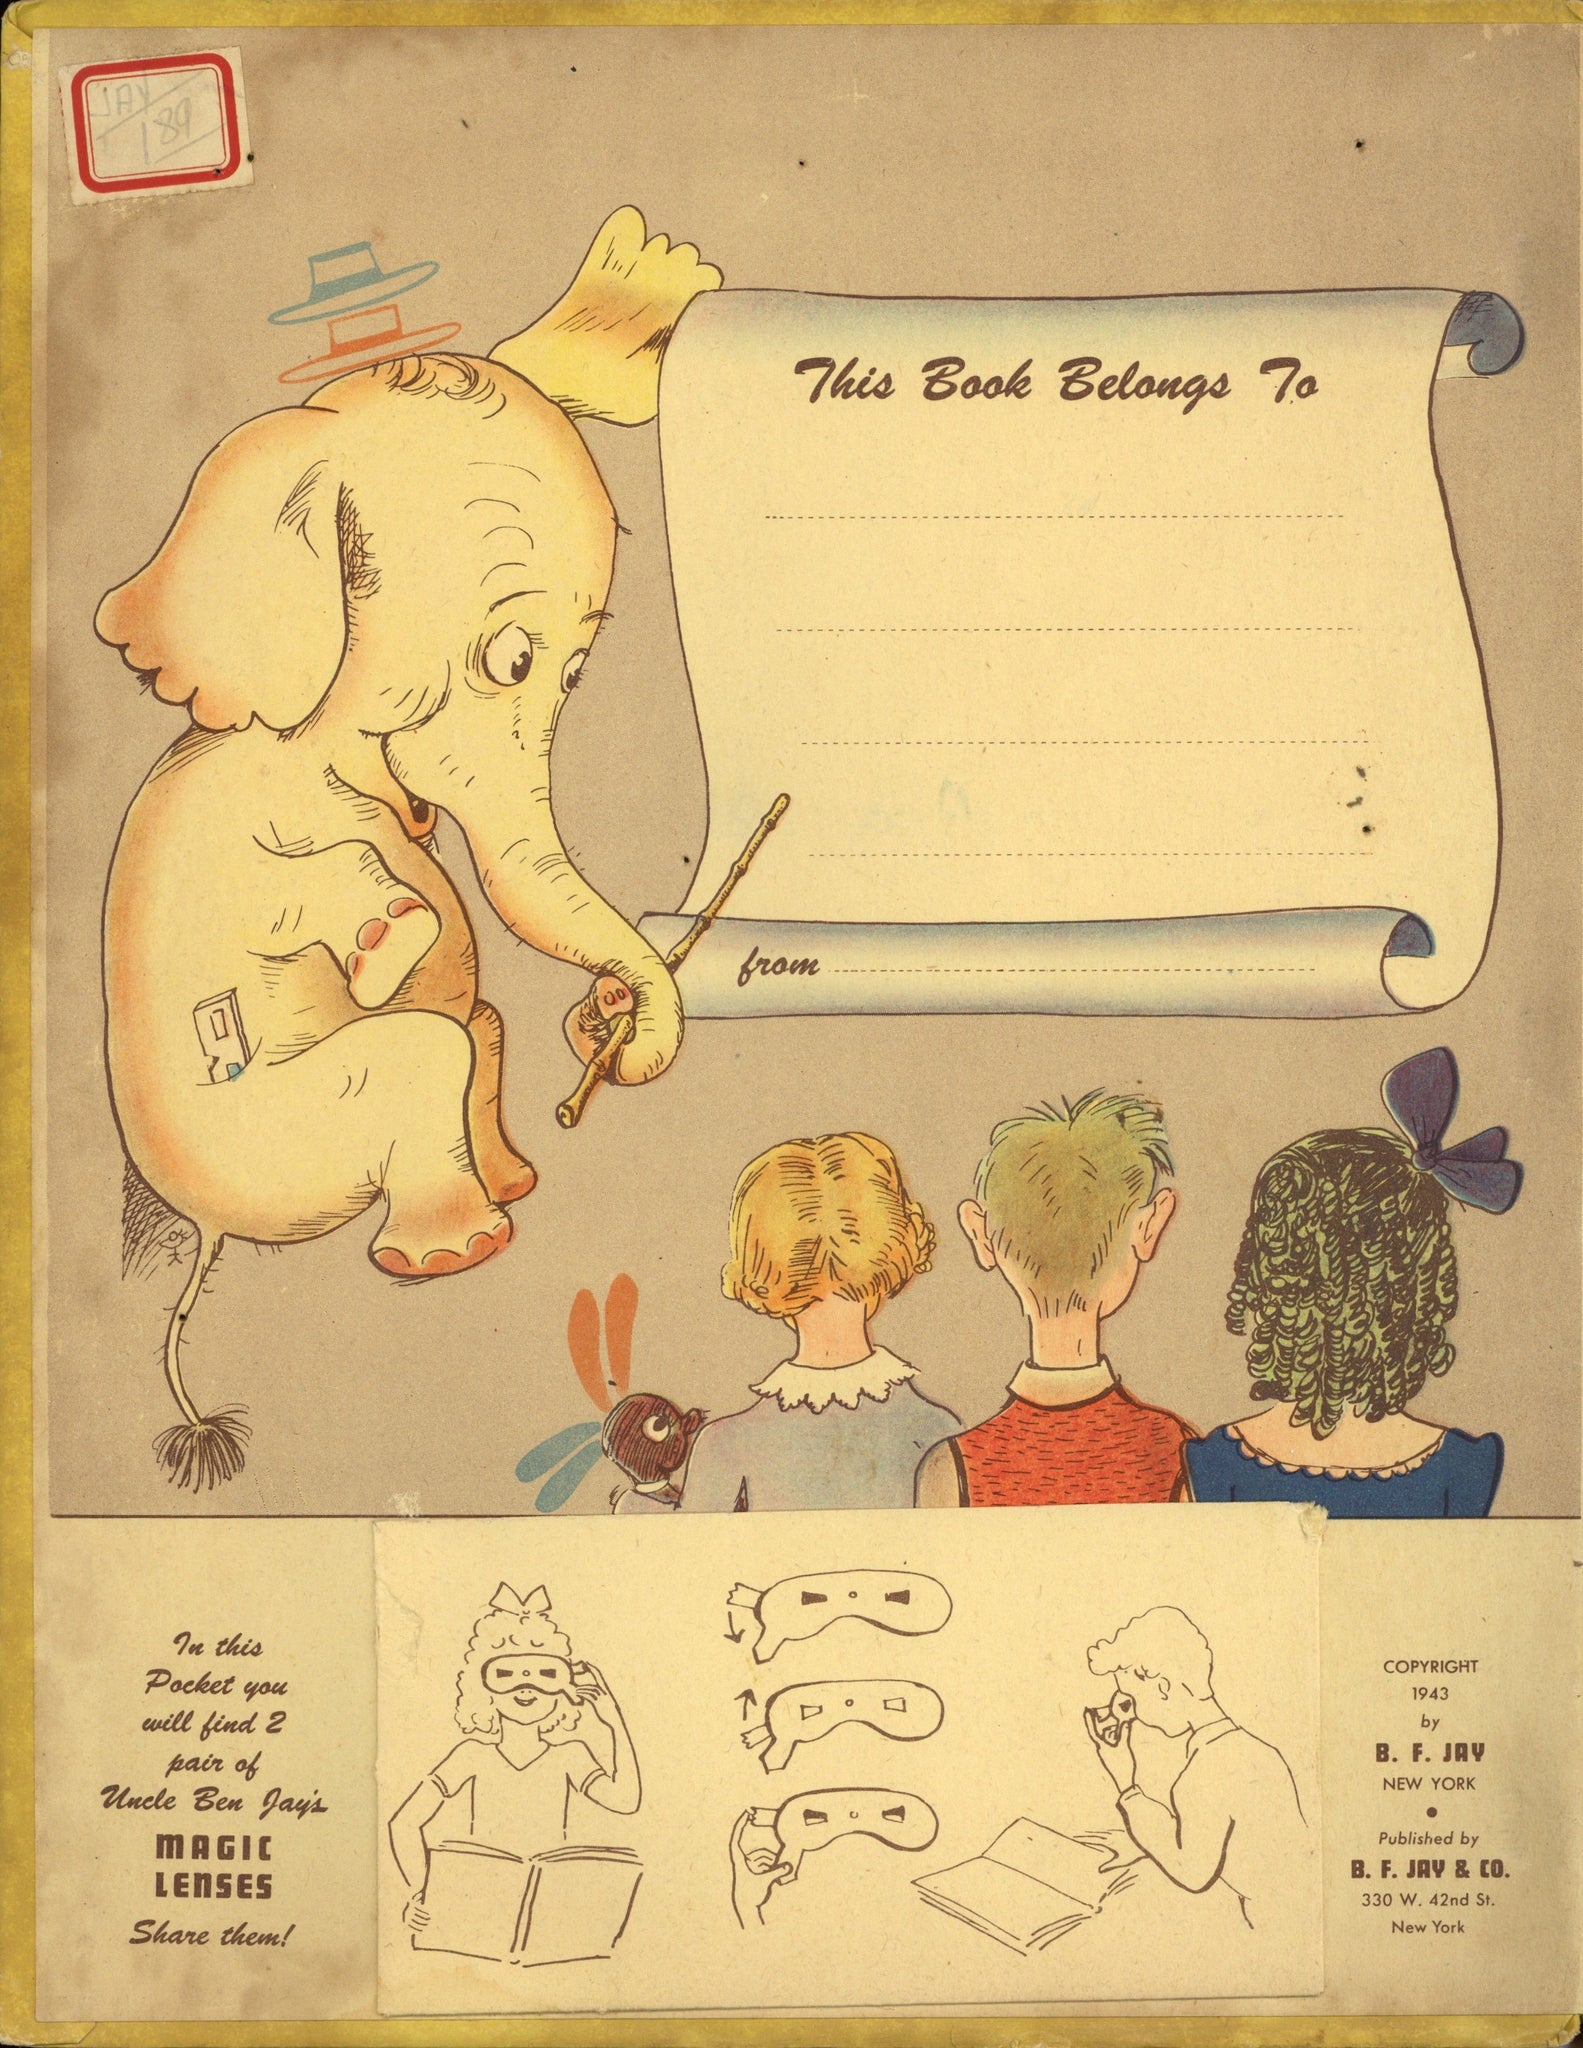 JAY
189
This Book Belongs To
from
In this
Pocket you
will find 2
pair of
Uncle Ben Jay's
MAGIC
LENSES
Share them!
COPYRIGHT
1943
by
B. F. JAY
NEW YORK
Published by
B. F. JAY & CO.
330 W. 42nd St.
New York